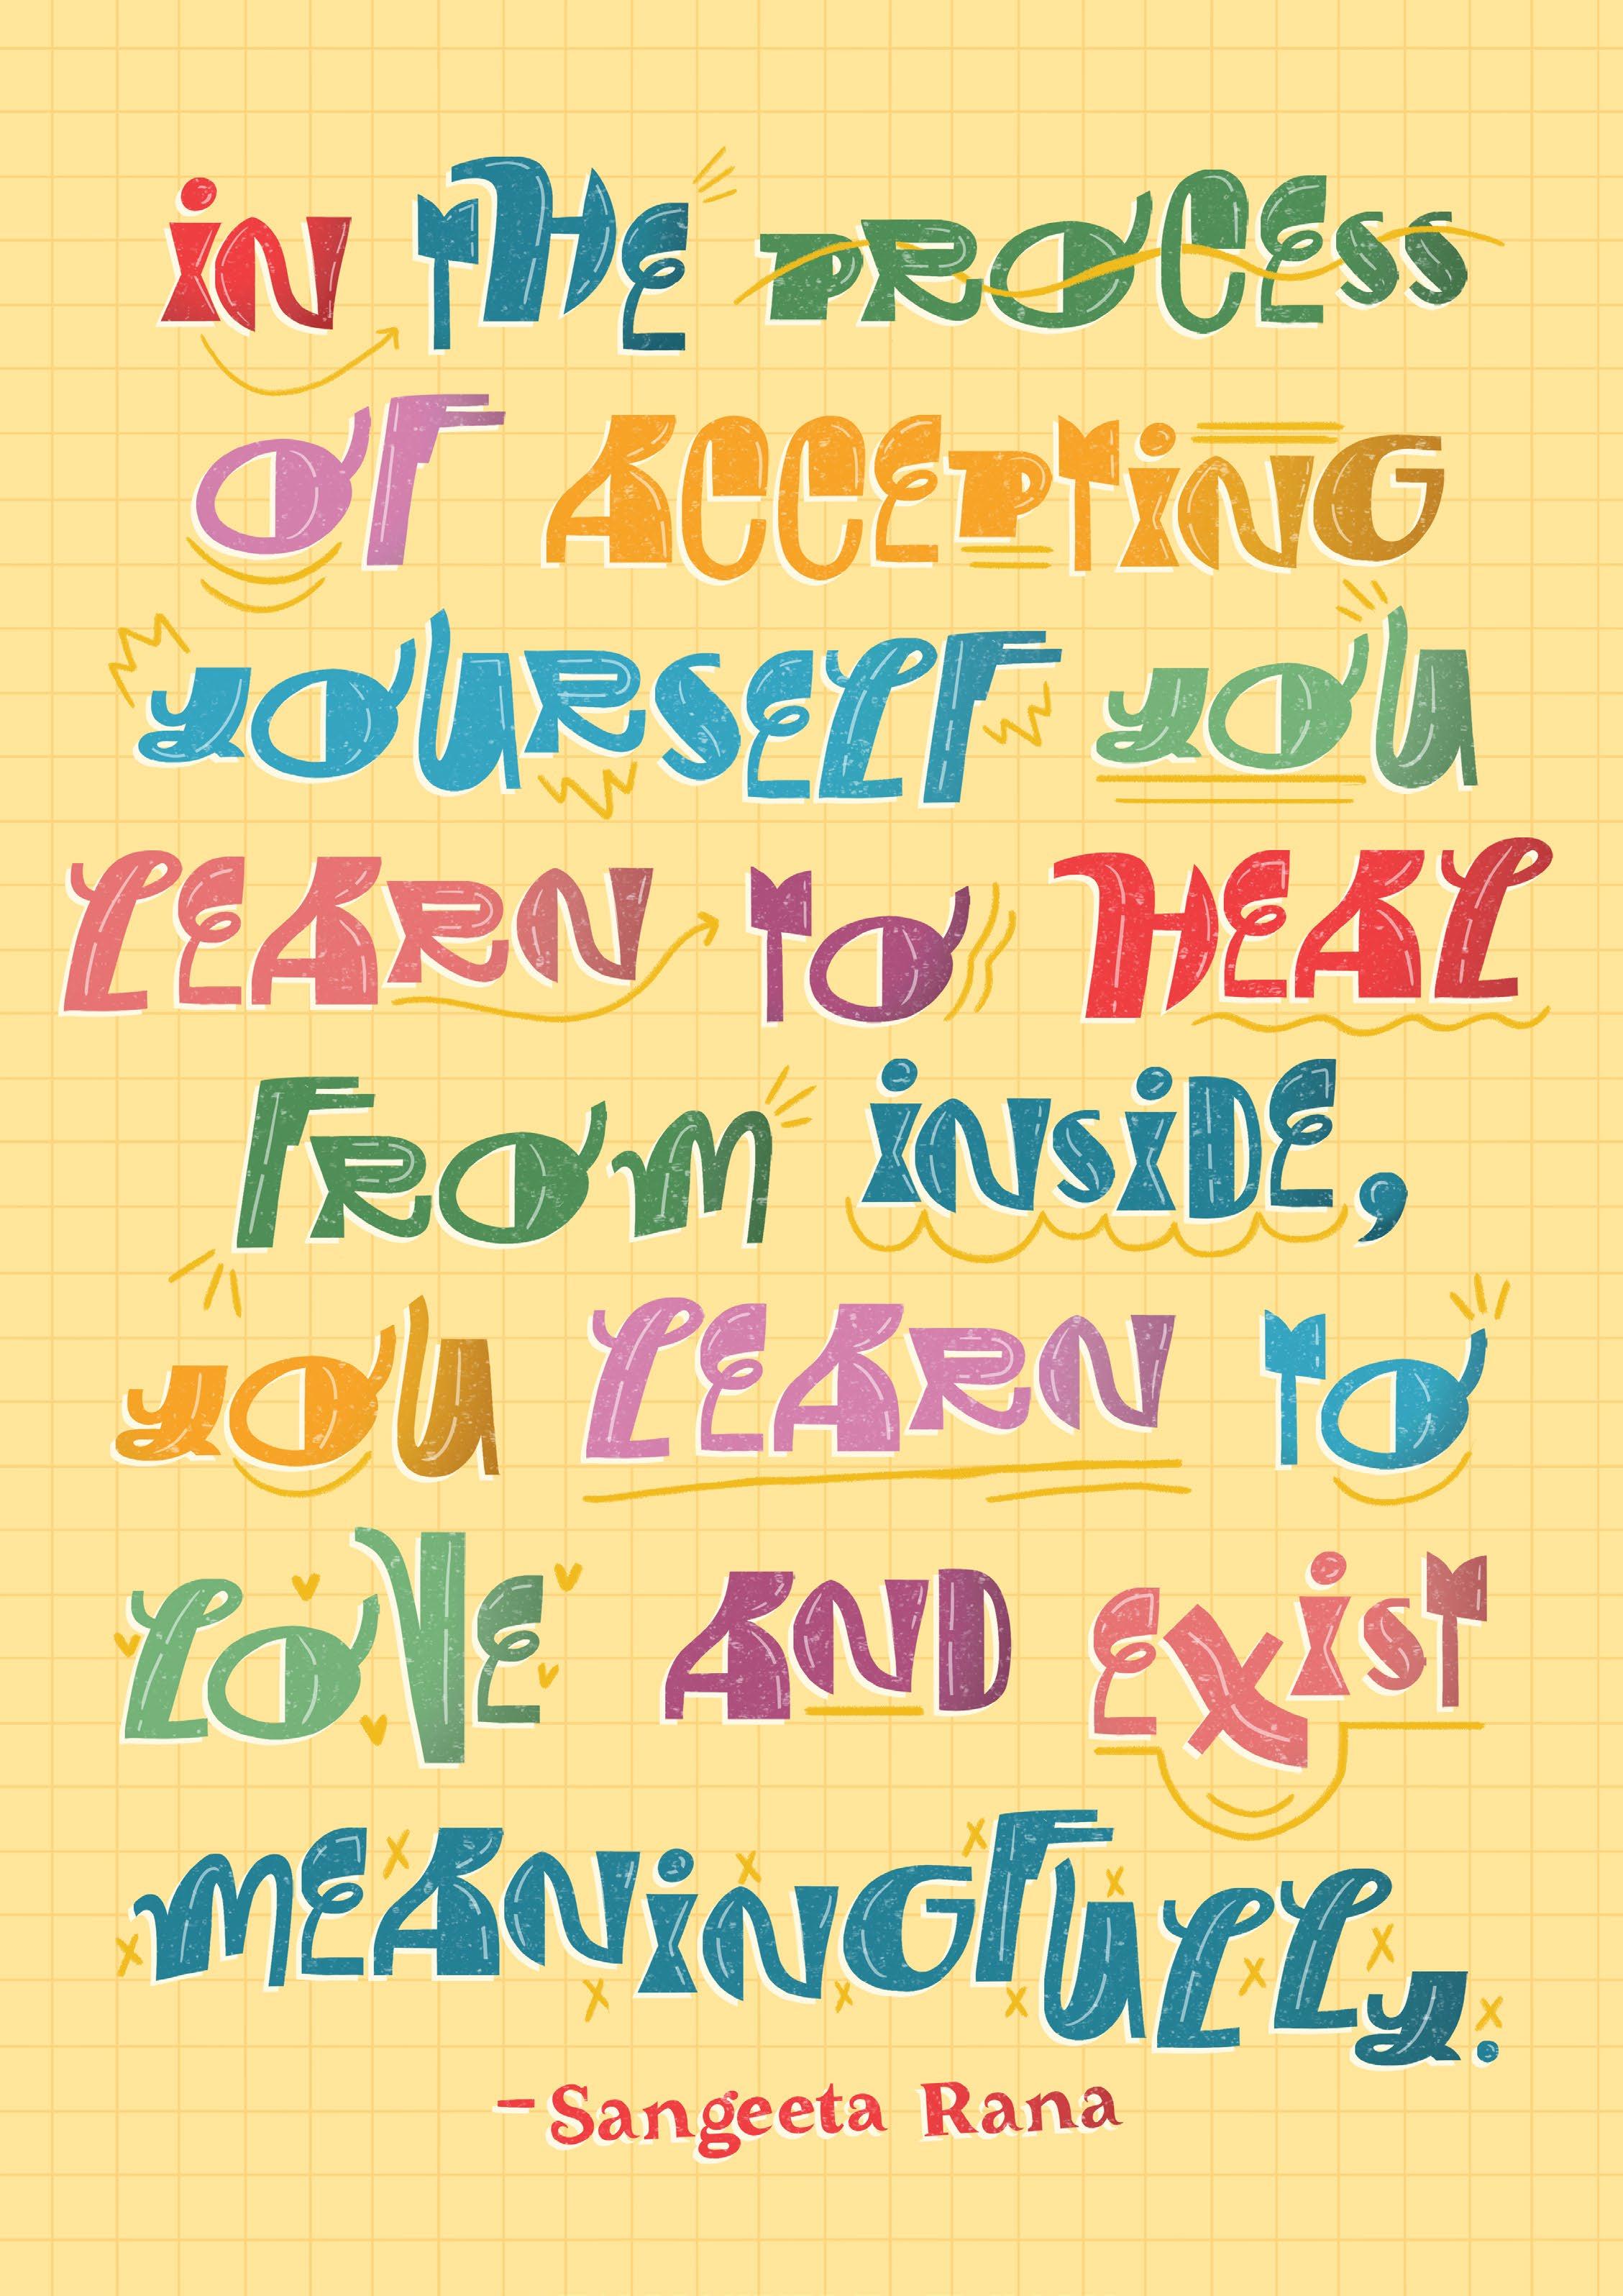 iN THE PROCESS
OF ACCEPTiNG
yOURSELF yOU
LEARN TO HEAL
FROM iNSiDE,
yOU LEARN TO
LOVE AND EXiST
MEANiNGFULLy.
-Sangeeta Rana